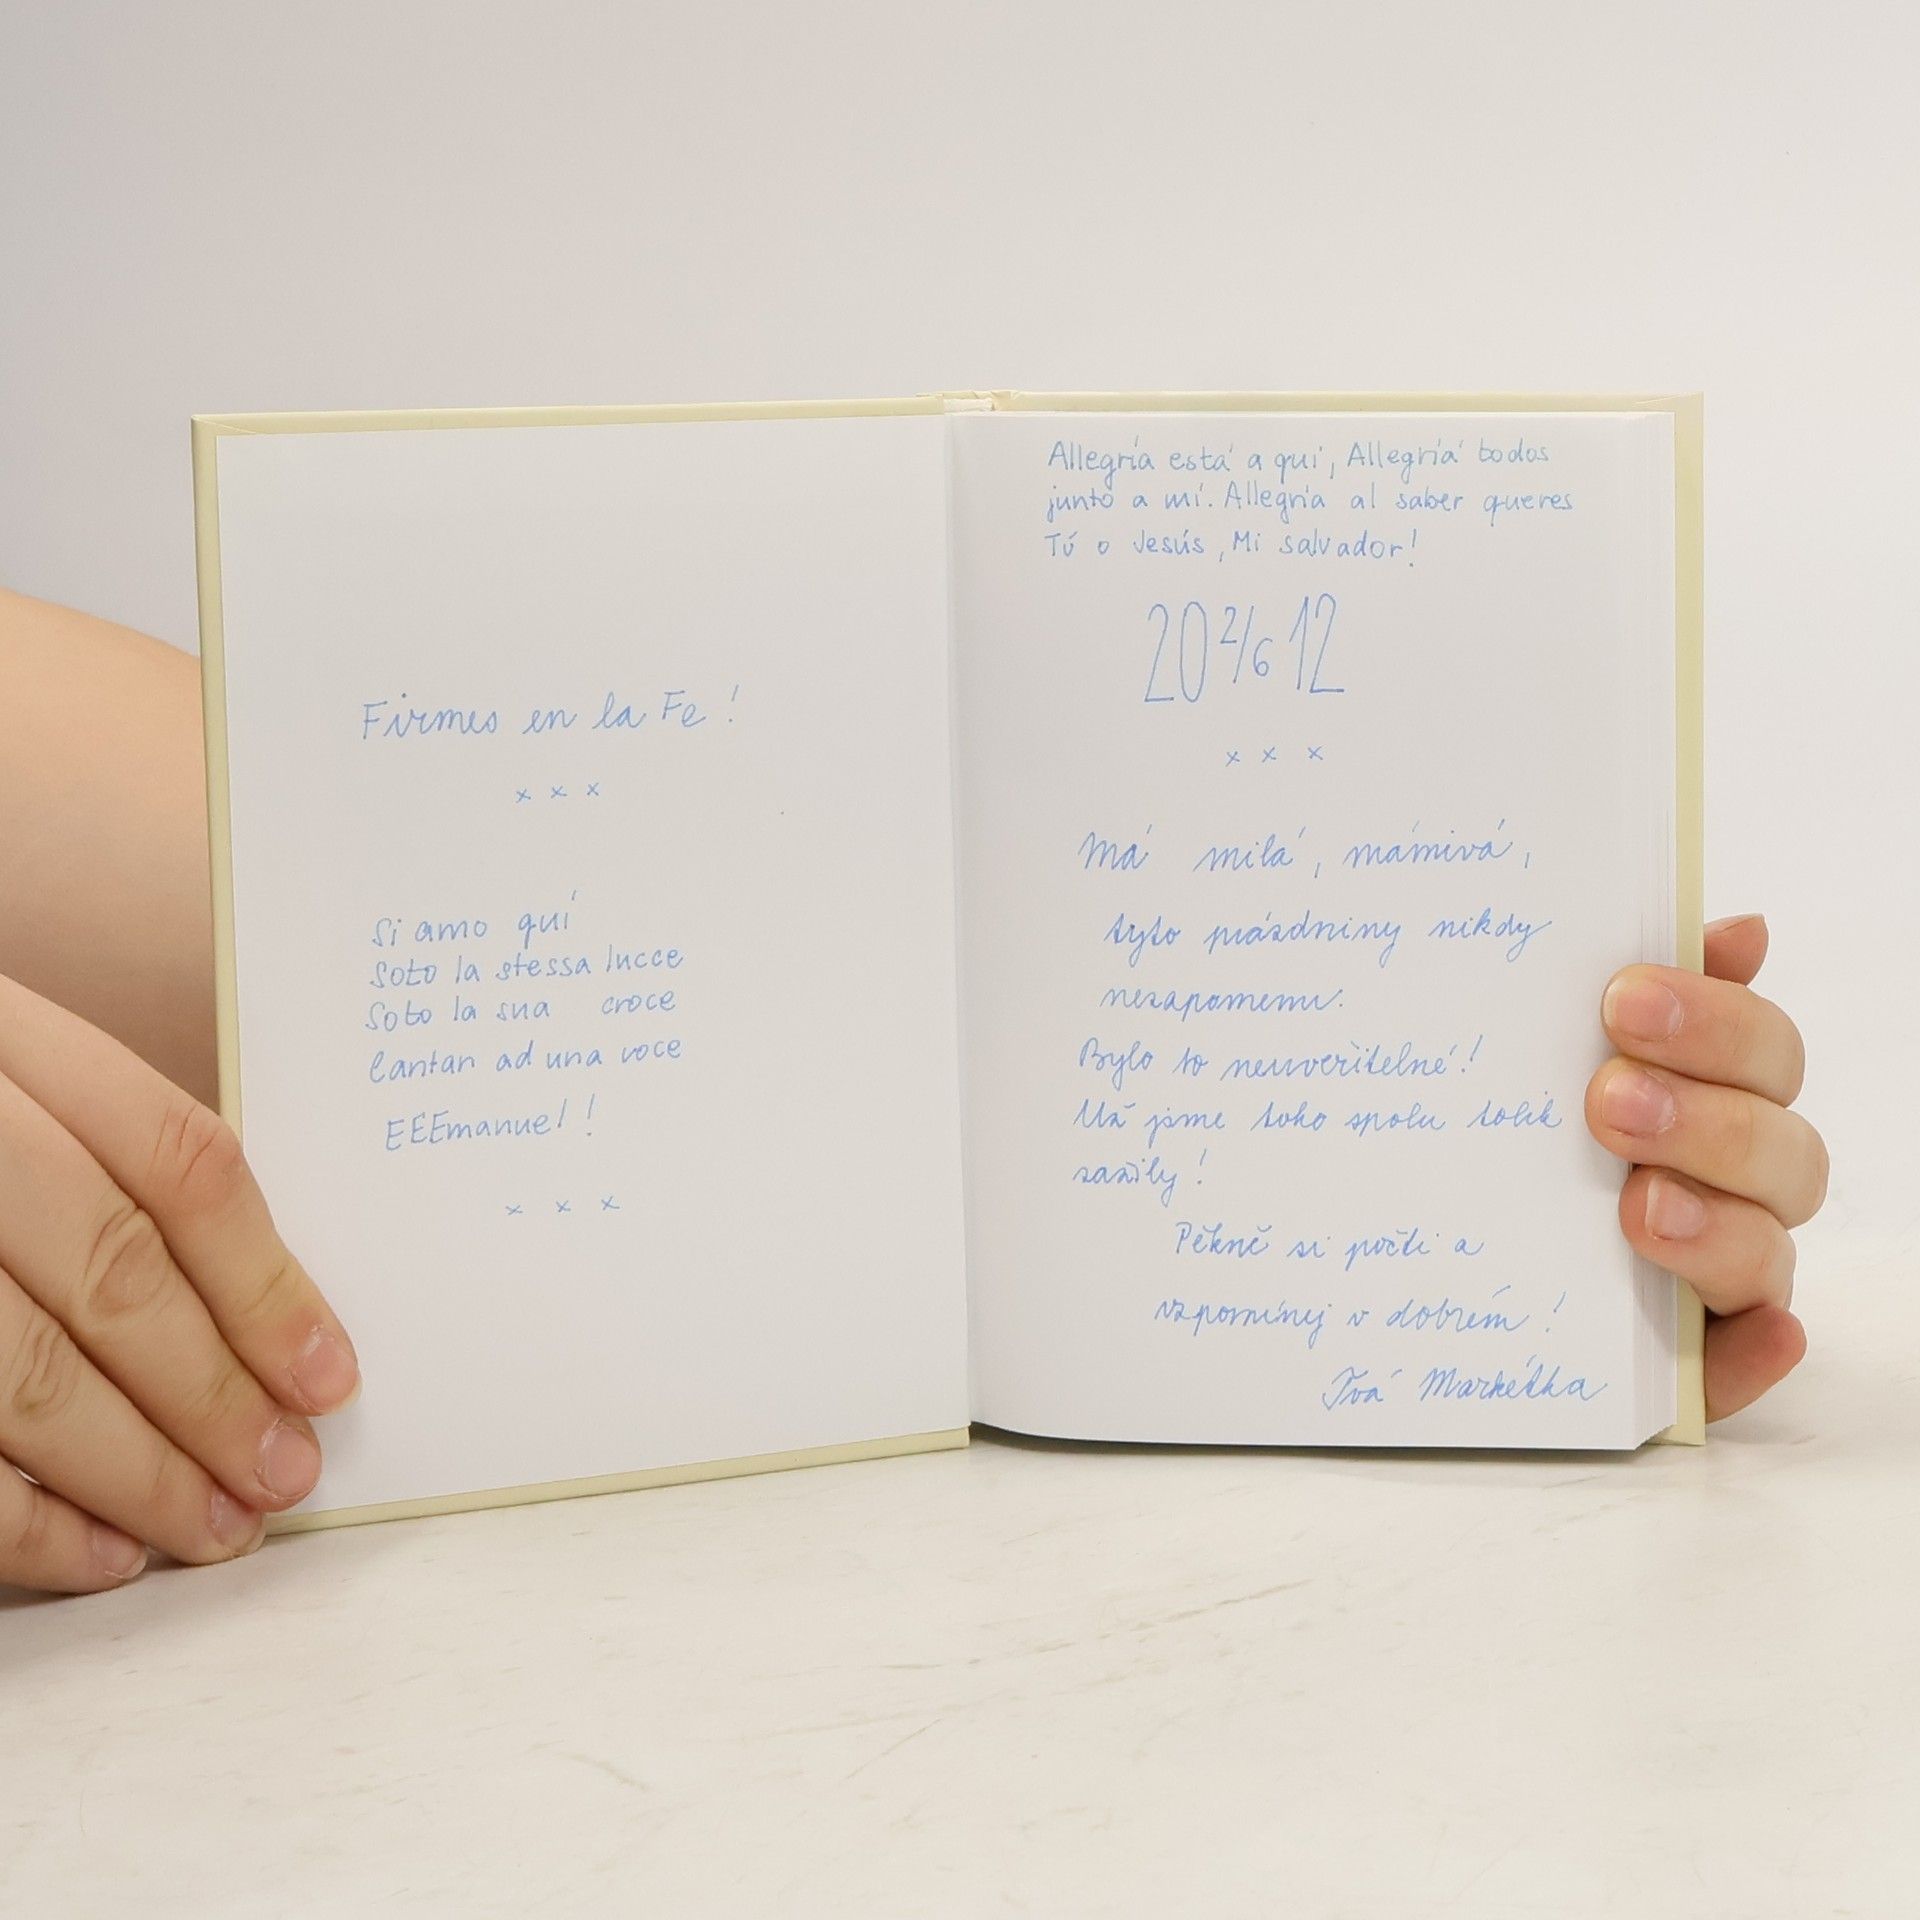 Firmes en la Fe!
x x x
Si amo quí
Soto la stessa lucce
Soto la sua croce
Cantan ad una voce
EEEmanuel!
x x x
Allegría está a quí, Allegríá todos
junto a mí. Allegría al saber queres
Tú o Jesús, Mi salvador!
20 2/6 12
x x x
Má milá,
tyto prázdniny nikdy
nezapomenu.
Bylo to neuvěřitelné!
Už jsme toho spolu tolik
zažily!
Pěkně si počti a
vzpomínej v dobrém!
Tvá Markétka